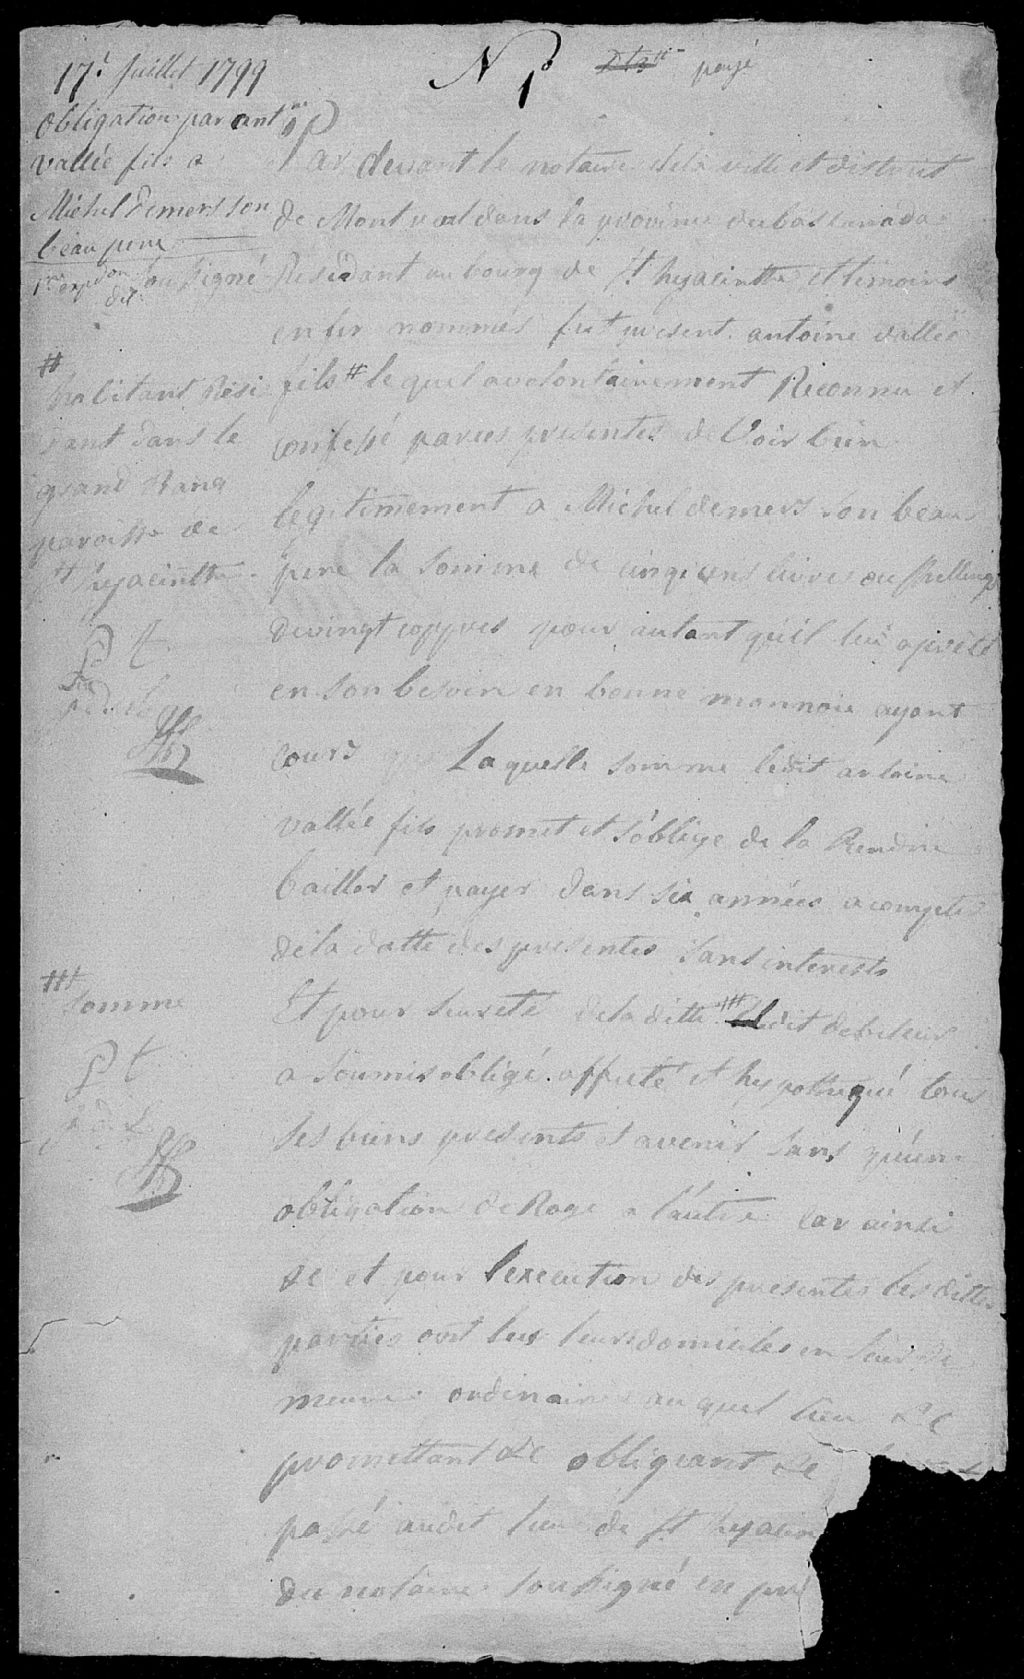 17.t Juillet 1799
N 1.o
payé
obligation par ant.ne
vallée fils a
Michel Demers son
beau pere
1.ere expedon
dil:
Par devant le notaire dela ville et district
de Montreal dans la province du bas canada
soussigné Residant au bourg de St hyacinthe et temoins
enfin nommés fut present antoine vallée
fils # lequel a volontairement Reconnu et
confessé par ces presentes deVoir bien
legitimement a Michel demers son beau
pere la somme de cinq cens livres ou shellings
de vingt coppres pour autant qu'il lui a preté
en son besoin en bonne monnoie ayant
cours Laquelle somme ledit antoine
vallée fils promet et s'oblige de la Rendre
bailler et payer dans six années a compter
dela datte des presentes sans interests
Et pour sureté dela ditte ### ledit debiteur
a soumis obligé affecté et hypothequé tous
ses biens presents et avenir sans qu'une
obligation deRoge a l'autre car ainsi
&c et pour l'execution des presentes les dittes
parties ont leurs domiciles en leur de
meure ordinaire au quel lieu &c
promettant &c obligeant &c
passé audit lieu de St hyacin
du notaire soussigné en pré
#
habitant Resi
dant dans le
grand Rang
paroisse de
St hyacinthe
###
somme